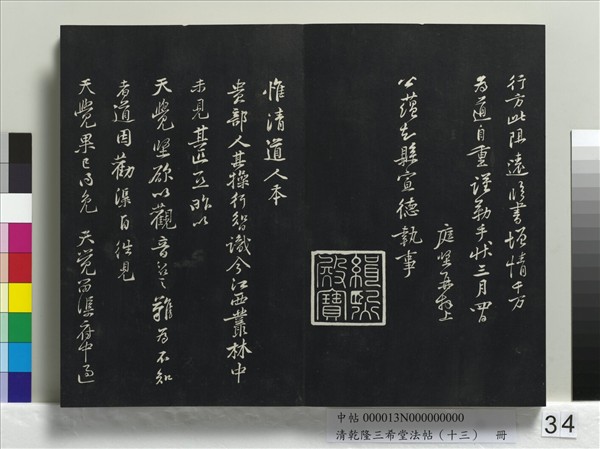 行方此阻遠臨書增情千万
為道自重謹勒手狀三月四日
庭堅再拜上
公蘊知縣宣德執事
緝熙殿寶
惟清道人本
貴部人其操行智識今江西叢林中
未見其匹亞昨以
天覺堅欲以觀音召之難為不知
者道因勸渠自往見
天覺果已得免 天覺留渠府中過
中帖 000013N000000000
清乾隆三希堂法帖（十三） 冊
34